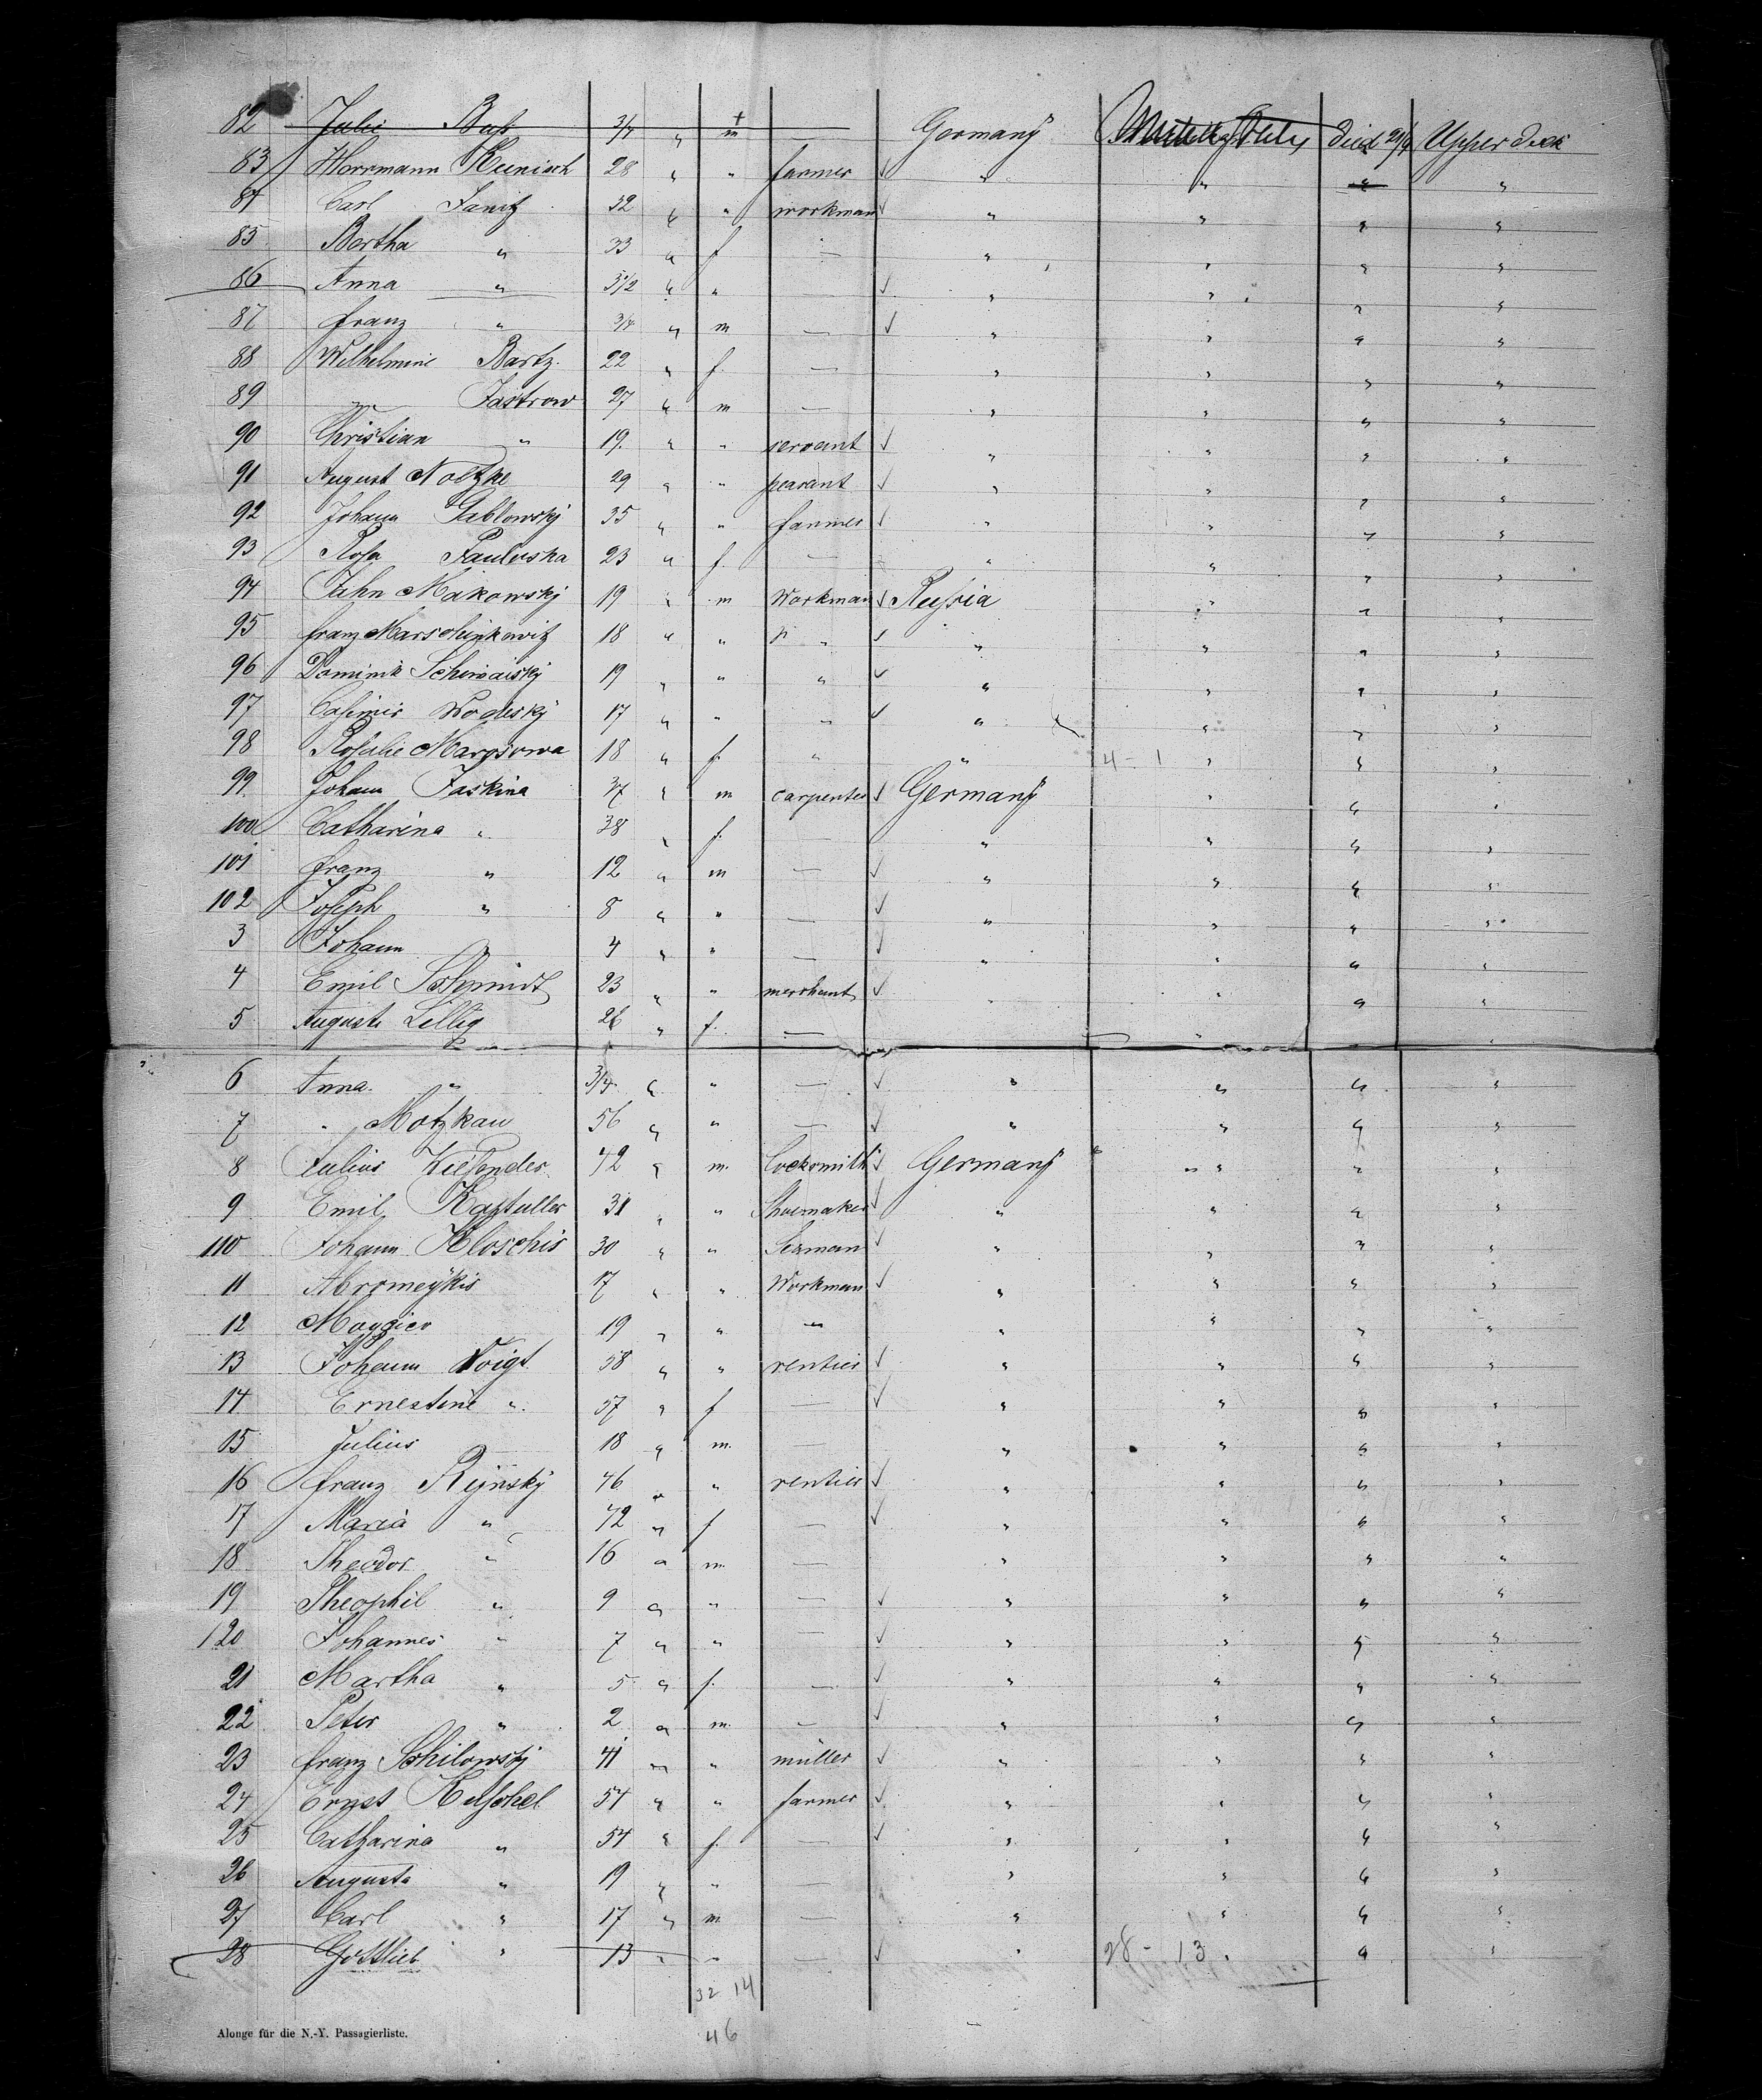 82 Julie Bass 3/4 " m — Germany died 29/4 Upper deck
83 Herrmann Kunisch 28 " " farmer ✓ " " " "
84 Carl Janitz 32 " " workman ✓ " " " "
85 Bertha " 33 " f — " " " "
86 Anna " 3 1/2 " " — ✓ " " " "
87 Franz " 3/4 " m — ✓ " " " "
88 Wilhelmine Bartz 22 " f. — " " " "
89 " Jastrow 27 " m — " " " "
90 Christian " 19 " " servant ✓ " " " "
91 August Noltzke 29 " " peasant ✓ " " " "
92 Johann Jablowsky 35 " " farmer ✓ " " " "
93 Rosa Pauluska 23 " f. — " " " "
94 Jahn Makowsky 19 " m Workman ✓ Russia " " "
95 Franz Marschinkowitz 18 " " " ✓ " " " "
96 Dominik 19 " " " ✓ " " " "
97 Casimir Wodesky 17 " " " ✓ " " " "
98 Rosalie 18 " f. " " 4 - 1 " " "
99 Johann Jaskina 37 " m carpenter ✓ Germany " " "
100 Catharina " 38 " f. — " " " "
101 Franz " 12 " m — ✓ " " " "
102 Joseph " 8 " " — ✓ " " " "
3 Johann " 4 " " — ✓ " " " "
4 Emil Schmidt 23 " " merchant ✓ " " " "
5 Auguste Lillig 26 " f. — " " "
6 Anna " 3/4 " " — ✓ " " " "
7 " Motzkau 56 " " — ✓ " " " "
8 Julius Kiesender 42 " m. Locksmith ✓ Germany " " "
9 Emil Kaptuller 31 " " Shoemaker ✓ " " " "
110 Johann Kloschis 30 " " Seaman ✓ " " " "
11 Abromeykis 17 " " Workman ✓ " " " "
12 19 " " " " " " "
13 Johann Voigt 58 " " rentier ✓ " " " "
14 Ernestine " 57 " f — ✓ " " " "
15 Julius 18 " m. — " " " "
16 Franz Rynsky 46 " " rentier ✓ " " " "
17 Maria " 42 " f — ✓ " " " "
18 Theodor " 16 " m. — " " " "
19 Theophil " 9 " " — ✓ " " " "
120 Johannes " 7 " " — ✓ " " " "
21 Martha " 5 " f. — ✓ " " " "
22 Peter " 2 " m. — ✓ " " " "
23 Franz Schilowsky 41 " " müller ✓ " " " "
24 Ernst Kuschel 54 " " farmer ✓ " " " "
25 Catharina " 54 " f. — ✓ " " " "
26 Augusta " 19 " " — " " " "
27 Carl " 17 " m — " " " "
28 Gottlieb " 13 " " — ✓ " 28 - 13 " " "
32 14
46
Alonge für die N.-Y. Passagierliste.